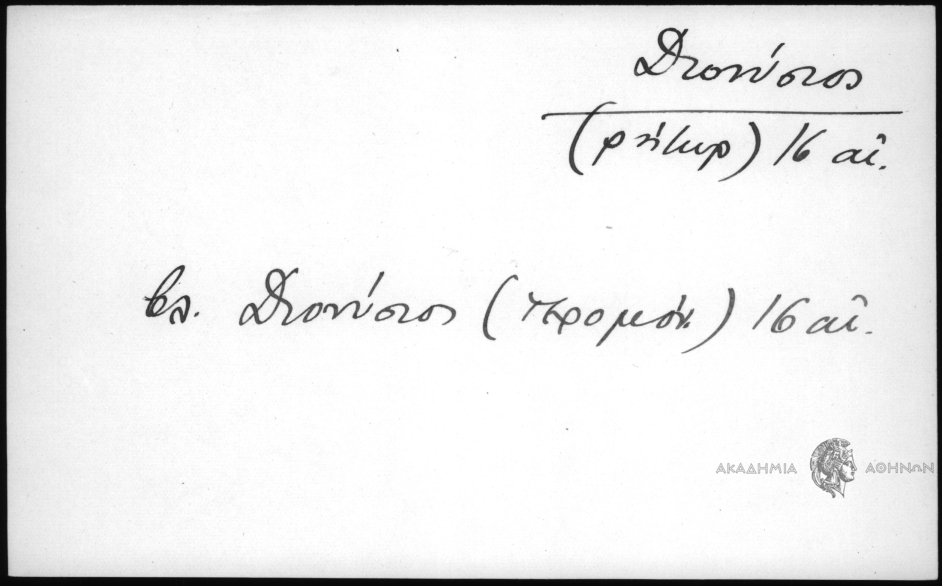 Διονύσιος
(ρήτωρ) 16 αἰ.
βλ. Διονύσιος (ἱερομόν.) 16 αἰ.
ΑΚΑΔΗΜΙΑ ΑΘΗΝΩΝ